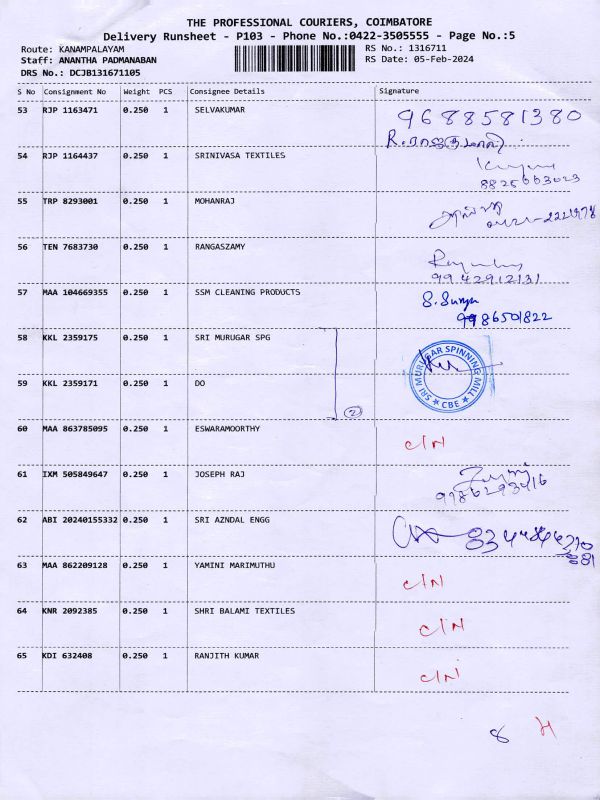 THE PROFESSIONAL COURIERS, COIMBATORE
Delivery Runsheet - P103 - Phone No.:0422-3505555 - Page No.:5
Route: KANAMPALAYAM RS No.: 1316711
Staff: ANANTHA PADMANABAN RS Date: 05-Feb-2024
DRS No.: DCJB131671105
S No Consignment No Weight PCS Consignee Details Signature
53 RJP 1163471 0.250 1 SELVAKUMAR 9688581380
54 RJP 1164437 0.250 1 SRINIVASA TEXTILES
55 TRP 8293001 0.250 1 MOHANRAJ
56 TEN 7683730 0.250 1 RANGASZAMY
9942912131
57 MAA 104669355 0.250 1 SSM CLEANING PRODUCTS S. Surya
9986501822
58 KKL 2359175 0.250 1 SRI MURUGAR SPG
SRI MURUGAR SPINNING MILL
★ CBE ★
59 KKL 2359171 0.250 1 DO
2
60 MAA 863785095 0.250 1 ESWARAMOORTHY C/N
61 IXM 505849647 0.250 1 JOSEPH RAJ
9786293416
62 ABI 20240155332 0.250 1 SRI AZNDAL ENGG
63 MAA 862209128 0.250 1 YAMINI MARIMUTHU C/N
64 KNR 2092385 0.250 1 SHRI BALAMI TEXTILES C/N
65 KDI 632408 0.250 1 RANJITH KUMAR C/N
8